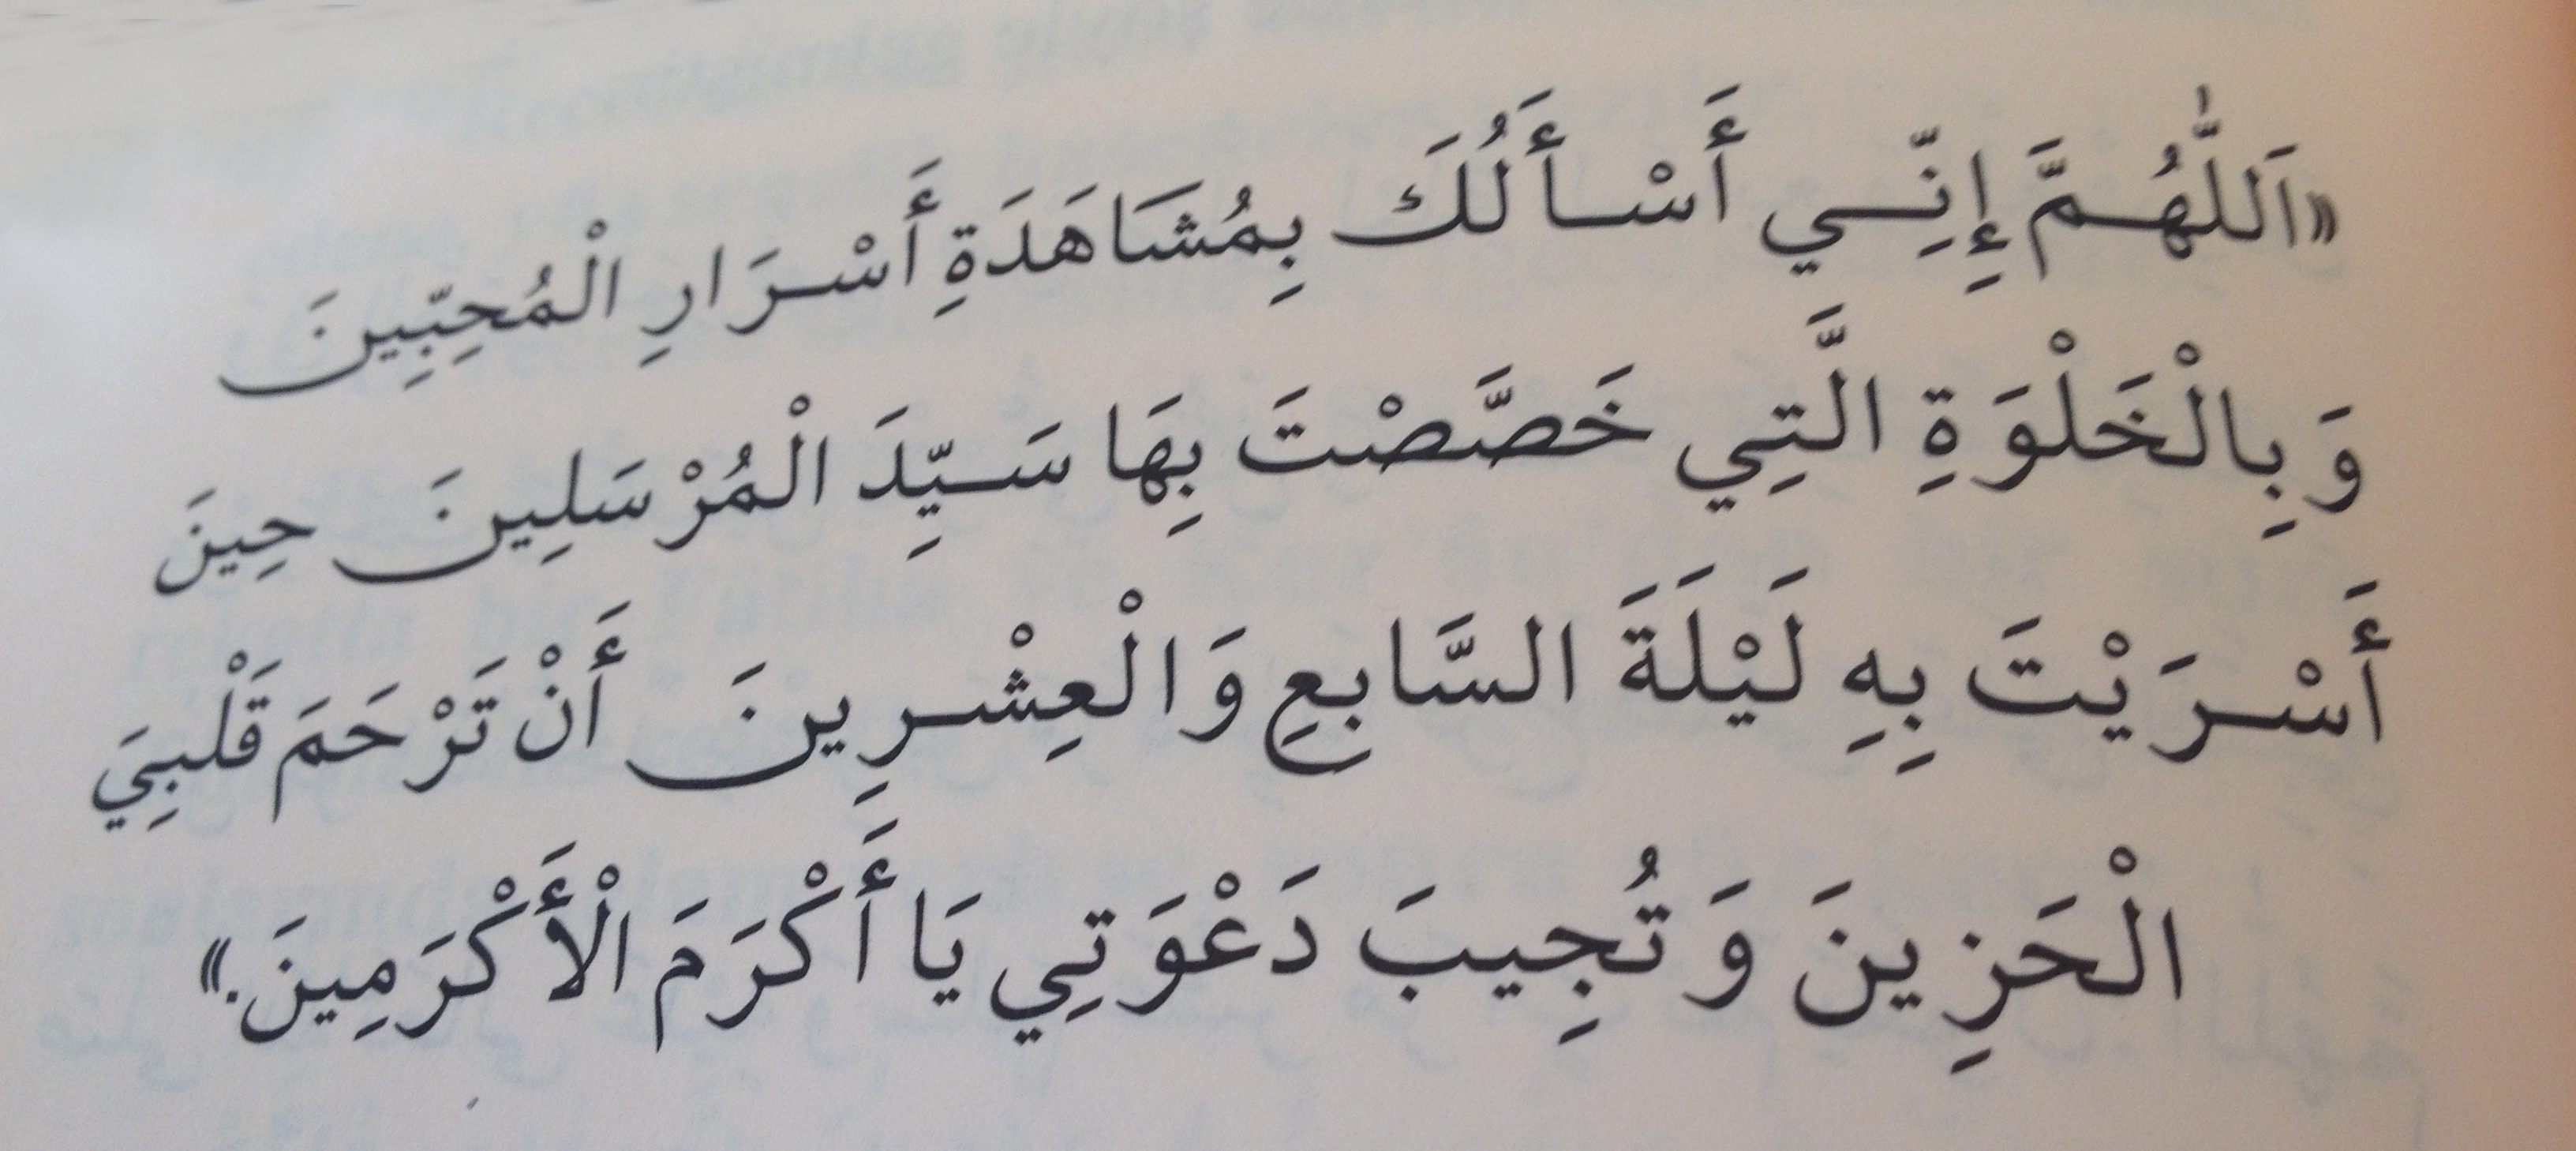 «اَللّٰهُمَّ إِنِّي أَسْأَلُكَ بِمُشَاهَدَةِ أَسْرَارِ الْمُحِبِّينَ
وَبِالْخَلْوَةِ الَّتِي خَصَّصْتَ بِهَا سَيِّدَ الْمُرْسَلِينَ حِينَ
أَسْرَيْتَ بِهِ لَيْلَةَ السَّابِعِ وَالْعِشْرِينَ أَنْ تَرْحَمَ قَلْبِيَ
الْحَزِينَ وَتُجِيبَ دَعْوَتِي يَا أَكْرَمَ الْأَكْرَمِينَ.»